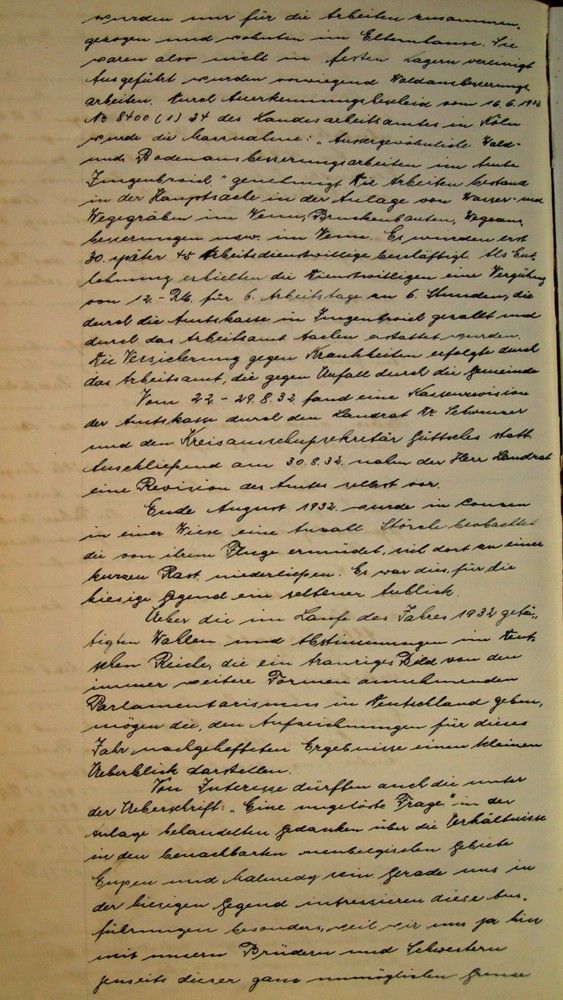 wurden nur für die Arbeiten zusammen-
gezogen und wohnten im Elternhause. Sie
waren also nicht in festen Lagern vereinigt
Ausgeführt wurden vorwiegend Waldausbesserungs
arbeiten. Durch Anerkennungsbescheid vom 16.6.1932
No 8400 (1) 34 des Landesarbeitsamtes in Köln
wurde die Massnahme: "Aussergewöhnliche Wald-
und Bodenausbesserungsarbeiten im Amte
Imgenbroich" genehmigt Die Arbeiten bestand
in der Hauptsache in der Anlage von Wasser- und
Wegegräben im Venn, Brückenbauten, Wegeaus
besserungen usw. im Venn. Es wurden erst
30. später 45 Arbeitsdienstwillige beschäftigt. Als Ent
lohnung erhielten die Dienstwilligen eine Vergütung
von 12.- Rk. für 6. Arbeitstage zu 6. Stunden, die
durch die Amtskasse in Imgenbroich gezahlt und
durch das Arbeitsamt Aachen erstattet wurden.
Die Versicherung gegen Krankheiten erfolgte durch
das Arbeitsamt, die gegen Unfall durch die Gemeinde
Vom 22. - 29.8.32 fand eine Kassenrevision
der Amtskasse durch den Landrat Dr. Schwenzer
und den Kreisausschußsekretär Güttsches statt
Anschließend am 30.8.32. nahm der Herr Landrat
eine Revision des Amtes selbst vor.
Ende August 1932. wurde in Conzen
in einer Wiese eine Anzahl Störche beobachtet
die von ihrem Fluge ermüdet, sich dort zu einer
kurzen Rast niederließen. Es war dies für die
hiesige Gegend ein seltener Anblick.
Ueber die im Laufe des Jahres 1932 getä-
tigten Wahlen und Abstimmungen im Deut-
schen Reiche, die ein trauriges Bild von den
immer weitere Formen annehmenden
Parlamentarismus in Deutschland geben,
mögen die, den Aufzeichnungen für dieses
Jahr nachgehefteten Ergebnisse einen kleinen
Ueberblick darstellen.
Von Interesse dürften auch die unter
der Ueberschrift: "Eine ungelöste Frage" in der
Anlage behandelten Gedanken über die Verhältnisse
in den benachbarten neubelgischen Gebiete
Eupen und Malmedy sein. Gerade uns in
der hiesigen Gegend interessieren diese Aus-
führungen besonders, weil wir uns ja hier
mit unsern Brüdern und Schwestern
jenseits dieser ganz unmöglichen Grenze